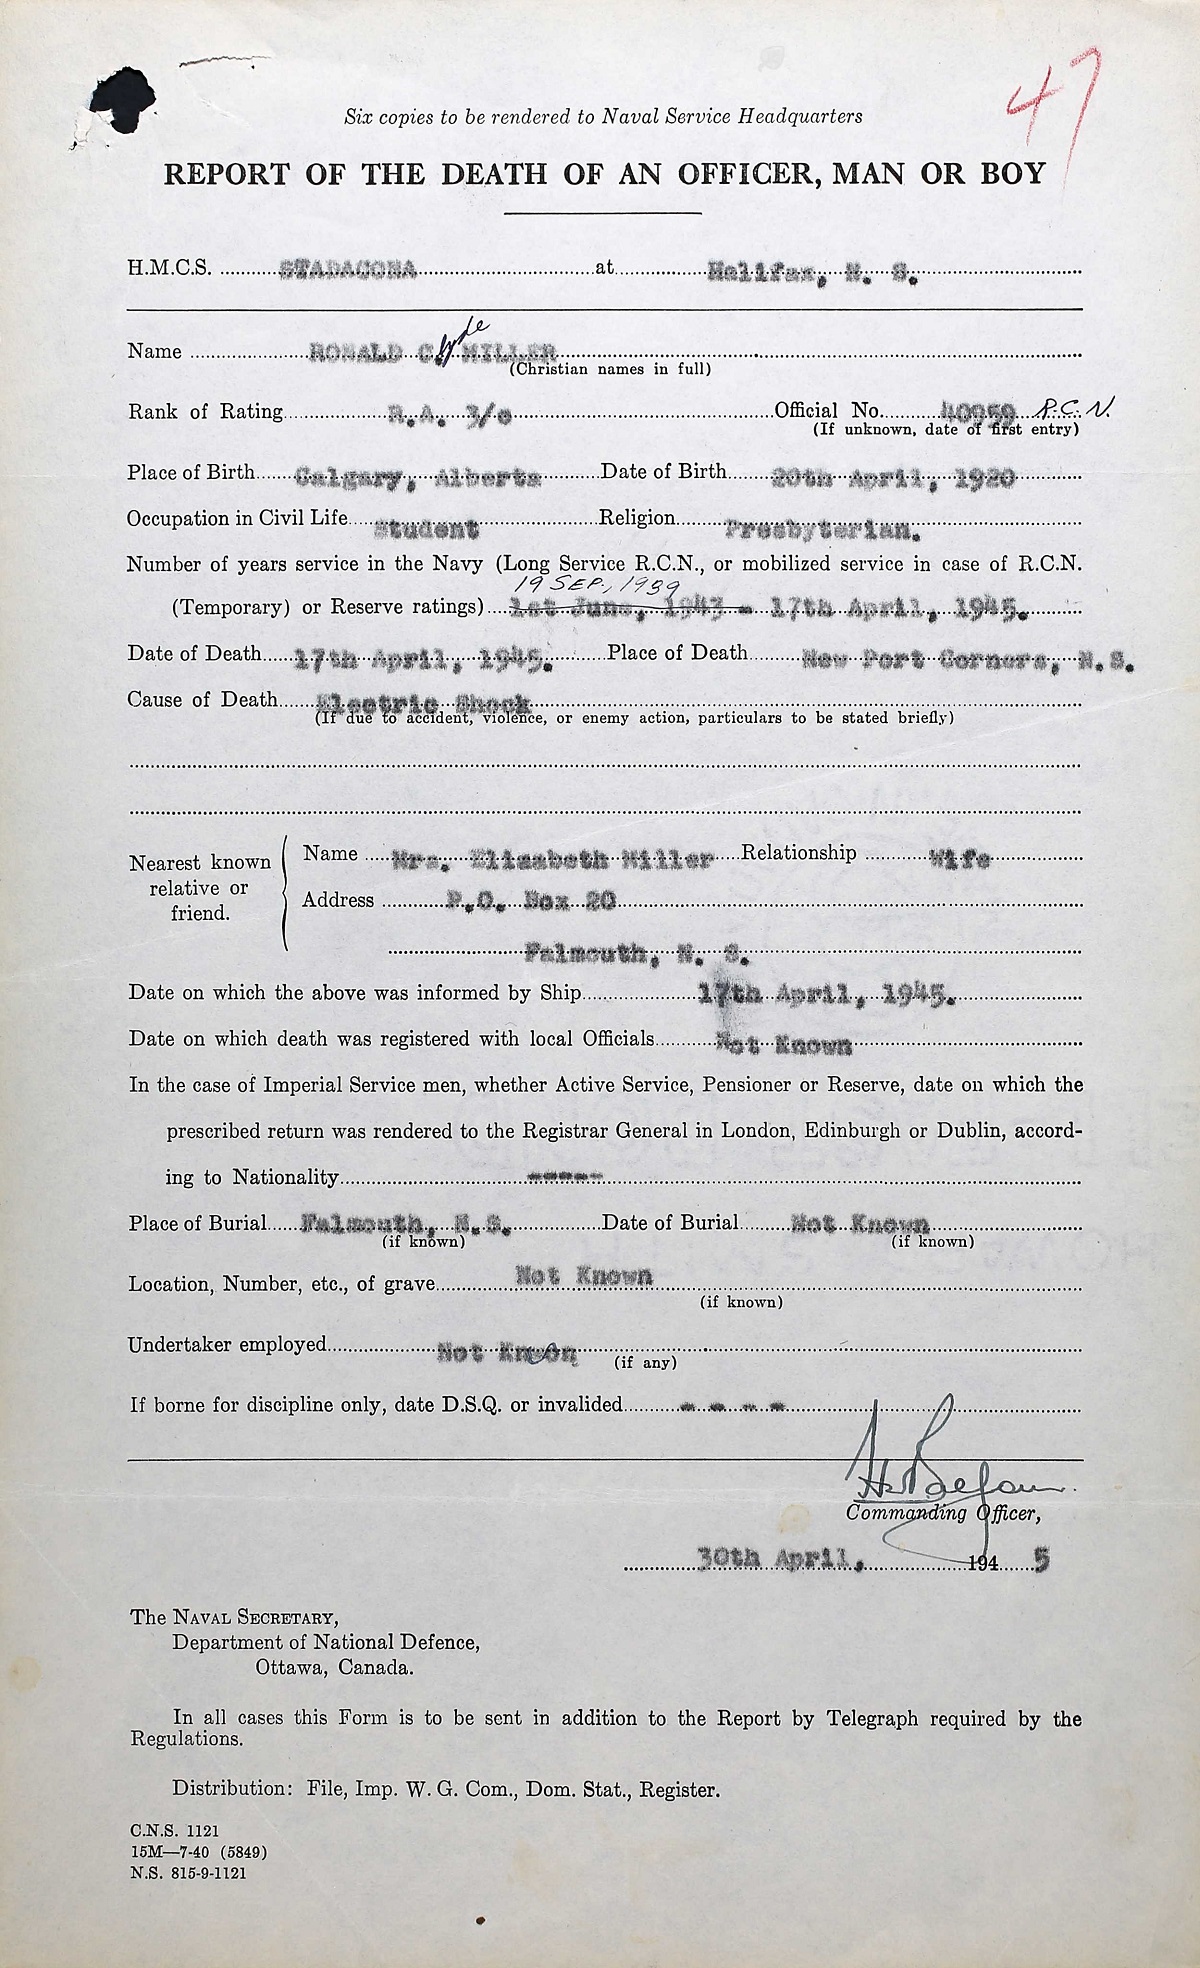 47
Six copies to be rendered to Naval Service Headquarters
REPORT OF THE DEATH OF AN OFFICER, MAN OR BOY
H.M.C.S. STADACONA at Halifax, N. S.
Name RONALD Clyde MILLER
(Christian names in full)
Rank of Rating R.A. 3/c Official No. 40959 R.C.N.
(If unknown, date of first entry)
Place of Birth Calgary, Alberta Date of Birth 20th April, 1920
Occupation in Civil Life Student Religion Presbyterian.
Number of years service in the Navy (Long Service R.C.N., or mobilized service in case of R.C.N.
19 SEP., 1939
(Temporary) or Reserve ratings) 1st June, 1943 - 17th April, 1945.
Date of Death 17th April, 1945. Place of Death New Port Corners, N.S.
Cause of Death Electric Shock
(If due to accident, violence, or enemy action, particulars to be stated briefly)
Nearest known relative or friend.
Name Mrs. Elizabeth Miller Relationship Wife
Address P.O. Box 20
Falmouth, N. S.
Date on which the above was informed by Ship 17th April, 1945.
Date on which death was registered with local Officials Not Known
In the case of Imperial Service men, whether Active Service, Pensioner or Reserve, date on which the
prescribed return was rendered to the Registrar General in London, Edinburgh or Dublin, accord-
ing to Nationality -----
Place of Burial Falmouth, N.S. Date of Burial Not Known
(if known) (if known)
Location, Number, etc., of grave Not Known
(if known)
Undertaker employed Not Knwon
(if any)
If borne for discipline only, date D.S.Q. or invalided - - - -
Commanding Officer,
30th April, 194 5
The NAVAL SECRETARY,
Department of National Defence,
Ottawa, Canada.
In all cases this Form is to be sent in addition to the Report by Telegraph required by the
Regulations.
Distribution: File, Imp. W. G. Com., Dom. Stat., Register.
C.N.S. 1121
15M—7-40 (5849)
N.S. 815-9-1121